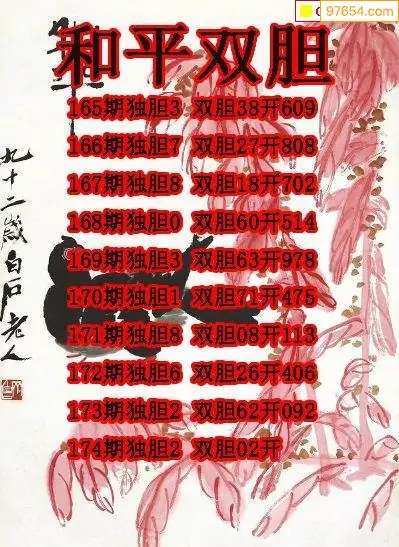 97654.com
和平双胆
165期独胆3 双胆38开609
166期独胆7 双胆27开808
167期独胆8 双胆18开702
168期独胆0 双胆60开514
169期独胆3 双胆63开978
170期独胆1 双胆71开475
171期独胆8 双胆08开113
172期独胆6 双胆26开406
173期独胆2 双胆62开092
174期独胆2 双胆02开
九十二岁白石老人